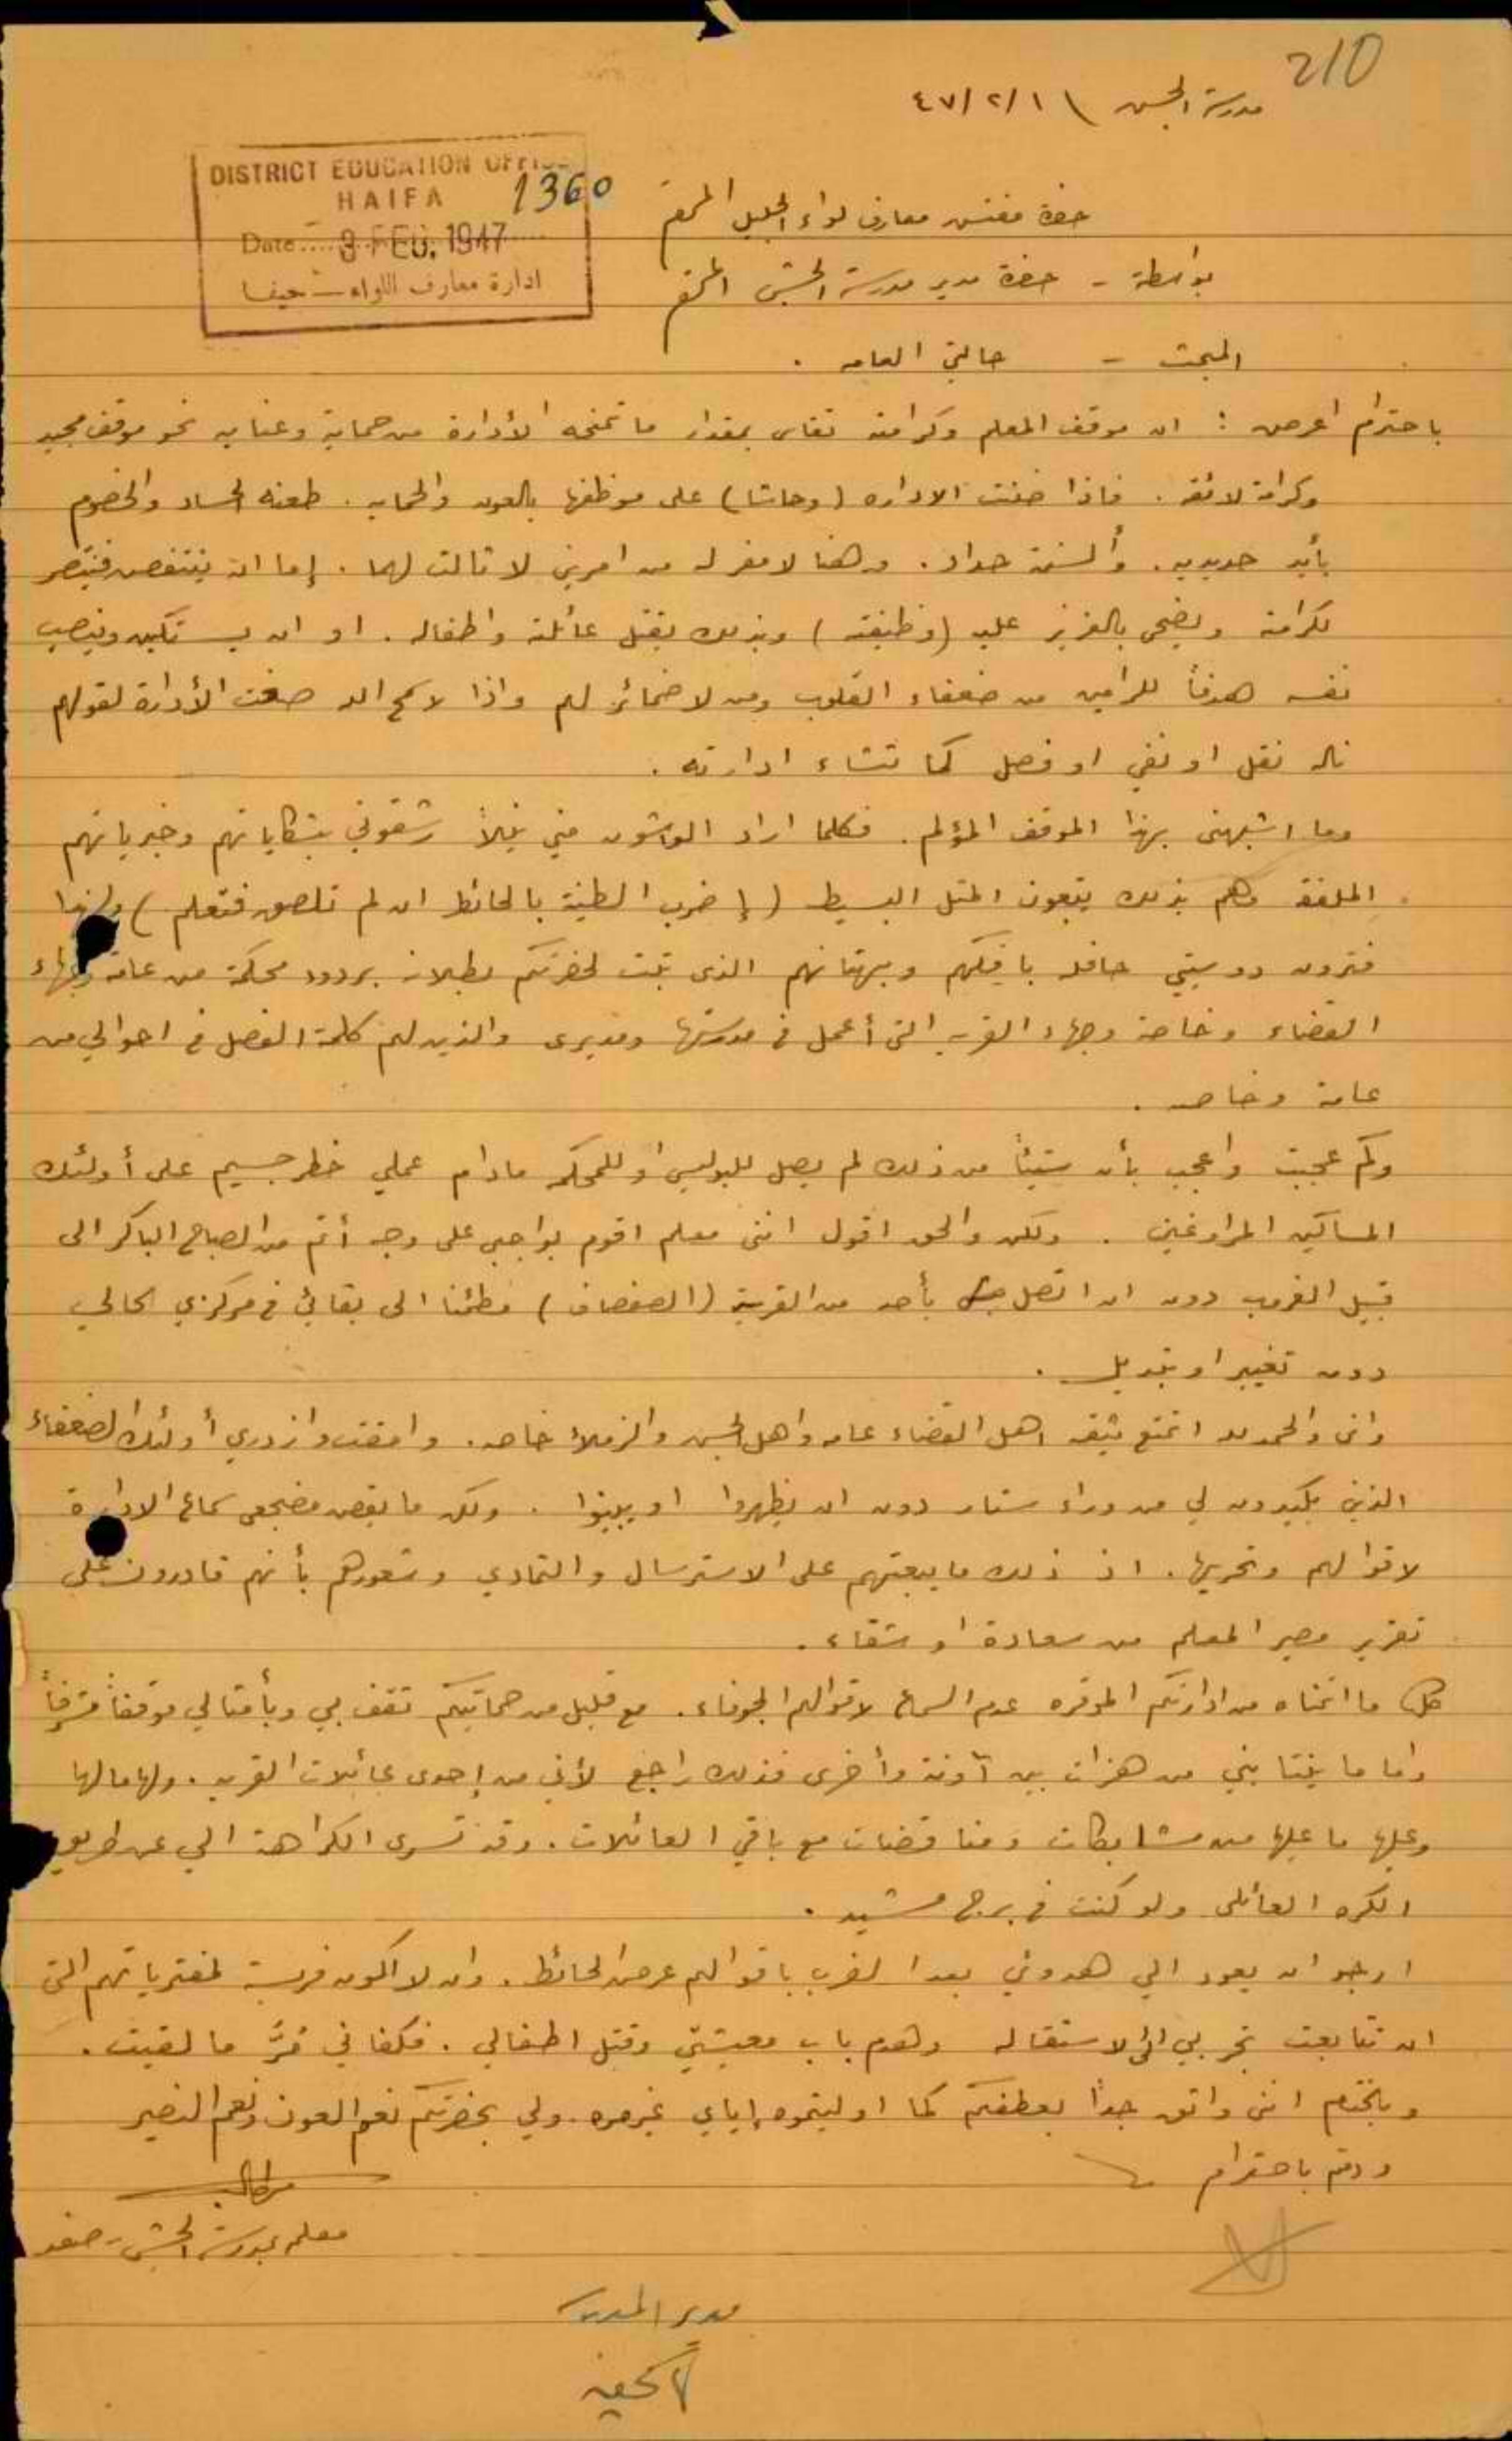 210
مدرسة الجش ١/٢/٤٧
DISTRICT EDUCATION OFFICE
HAIFA 1360
Date 3 FEB. 1947
ادارة معارف اللواء - حيفا
حضرة مفتش معارف لواء الجليل المحترم
بواسطة - حضرة مدير مدرسة الجش المحترم
المبحث - حالتي العامه .
باحترام اعرض : ان موقف المعلم وكرامته تقاس بمقدار ما تمنحه الأدارة من حماية وعنايه نحو موقف مجيد
وكرامة لائقه . فاذا ضنت الاداره (وحاشا) على موظفها بالعون والحمايه . طعنه الحساد والخصوم
بأيد حديديه . وألسنة حداد . وهنا لا مفر له من امرين لا ثالث لهما . إما ان ينتفض فينتصر
لكرامته ويضحي بالعزيز عليه (وظيفته) وبذلك يقتل عائلته واطفاله . او ان يستكين وينصب
نفسه هدفاً للرامين من ضعفاء القلوب ومن لا ضمائر لهم واذا لا سمح الله صغت الأدارة لقولهم
ناله نقل او نفي او فصل كما تشاء ادارته .
وما اشبهني بهذا الموقف المؤلم . فكلما اراد الواشون مني نيلاً رشقوني بشكاياتهم وخبرياتهم
الملفقة وهم بذلك يتبعون المثل البسيط (إضرب الطينة بالحائط ان لم تلصق فتعلم) ولهذا
فترون دوسيتي حافله بافكهم وبهتانهم الذي ثبت لحضرتكم بطلانه بردود محكمة من عامة وجهاء
القضاء وخاصة وجهاء القريه التي أعمل في مدرستها ومديري والذين لهم كلمة الفصل في احوالي من
عامة وخاصه .
وكم عجبت واعجب بأن شيئاً من ذلك لم يصل للبوليس أو للمحكمه مادام عملي خطر جسيم على أولئك
المساكين المراوغين . ولكن والحق اقول انني معلم اقوم بواجبي على وجه أتم من الصباح الباكر الى
قبيل الغروب دون ان اتصل بأحد من القرية (الصفصاف) مطمئنا الى بقائي في مركزي الحالي
دون تغيير او تبديل .
واني والحمد لله اتمتع بثقه اهل القضاء عامه واهل الجش والزملاء خاصه . وامقت وازدري أولئك الضعفاء
الذين يكيدون لي من وراء ستار دون ان يظهروا او يبينوا . ولكن ما يقض مضجعي سماع الادارة
لاقوالهم وتحريها . اذ ذلك ما يبعثهم على الاسترسال والتمادي وشعورهم بأنهم قادرون على
تقرير مصير المعلم من سعادة او شقاء .
كل ما اتمناه من ادارتكم الموقره عدم السماع لاقوالهم الجوفاء . مع قليل من حمايتكم تقف بي وبأمثالي موقفاً مشرفاً
واما ما ينتابني من هزات بين آونة وأخرى فذلك راجع لأني من إحدى عائلات القريه . ولها ما لها
وعليها ما عليها من مشابكات ومناقضات مع باقي العائلات . وقد تسري الكراهة الي عن طريق
الكره العائلي ولو كنت في برج مشيد .
ارجو ان يعود الي هدوئي بعد الضرب باقوالهم عرض الحائط . وان لا اكون فريسة لمفترياتهم التي
ان تتابعت تجر بي الى الاستقاله وهدم باب معيشتي وقتل اطفالي . فكفاني شرَّ ما لقيت .
وبالختام انني واثق جداً بعطفكم كما اوليتموه إياي غير مره . ولي بحضرتكم نعم العون ونعم النصير
ودمتم باحترام
معلم بمدرسة الجش - صفد
مدير المدرسة